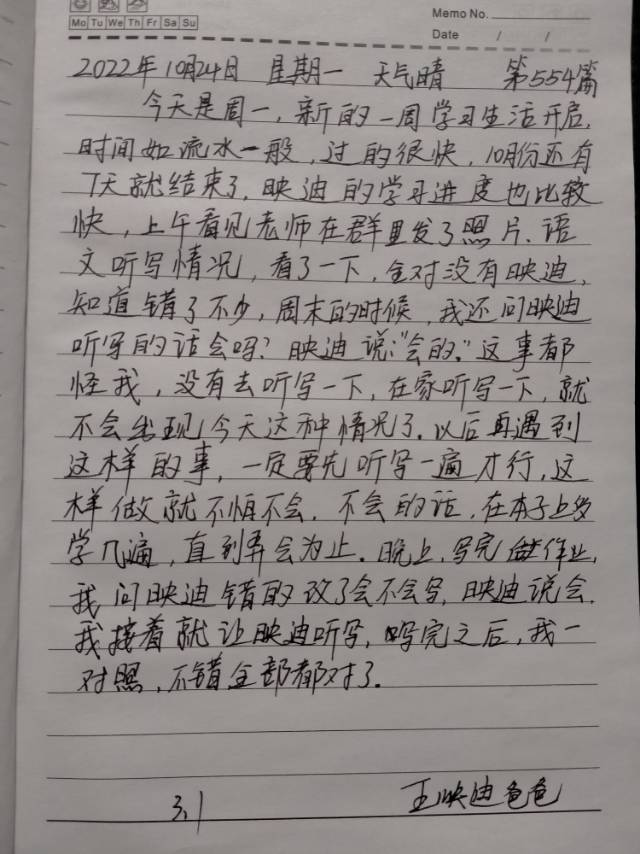 Memo No.
Mo Tu We Th Fr Sa Su
Date / /
2022年10月24日 星期一 天气晴 第554篇
今天是周一,新的一周学习生活开启,
时间如流水一般,过的很快,10月份还有
7天就结束了,映迪的学习进度也比较
快,上午看见老师在群里发了照片、语
文听写情况,看了一下,全对没有映迪,
知道错了不少,周末的时候,我还问映迪
听写的话会吗?映迪说:“会的。”这事都
怪我,没有去听写一下,在家听写一下,就
不会出现今天这种情况了.以后再遇到
这样的事,一定要先听写一遍才行,这
样做就不怕不会.不会的话,在本子上多
学几遍,直到弄会为止.晚上,写完作业,
我问映迪错的改了会不会写,映迪说会,
我接着就让映迪听写,写完之后,我一
对照,不错全部都对了.
3,1 王映迪爸爸